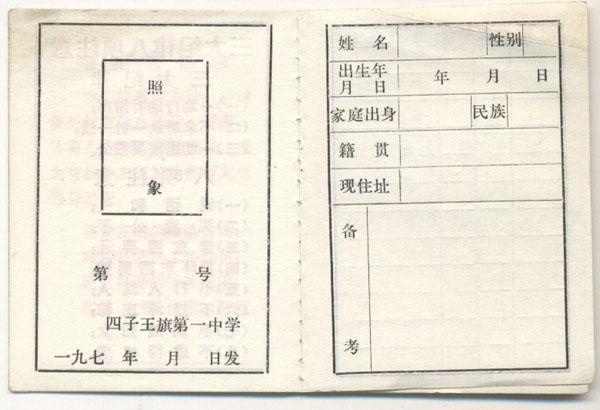 照
象
第 号
四子王旗第一中学
一九七 年 月 日发
姓 名 性别
出生年月日 年 月 日
家庭出身 民族
籍 贯
现住址
备
考